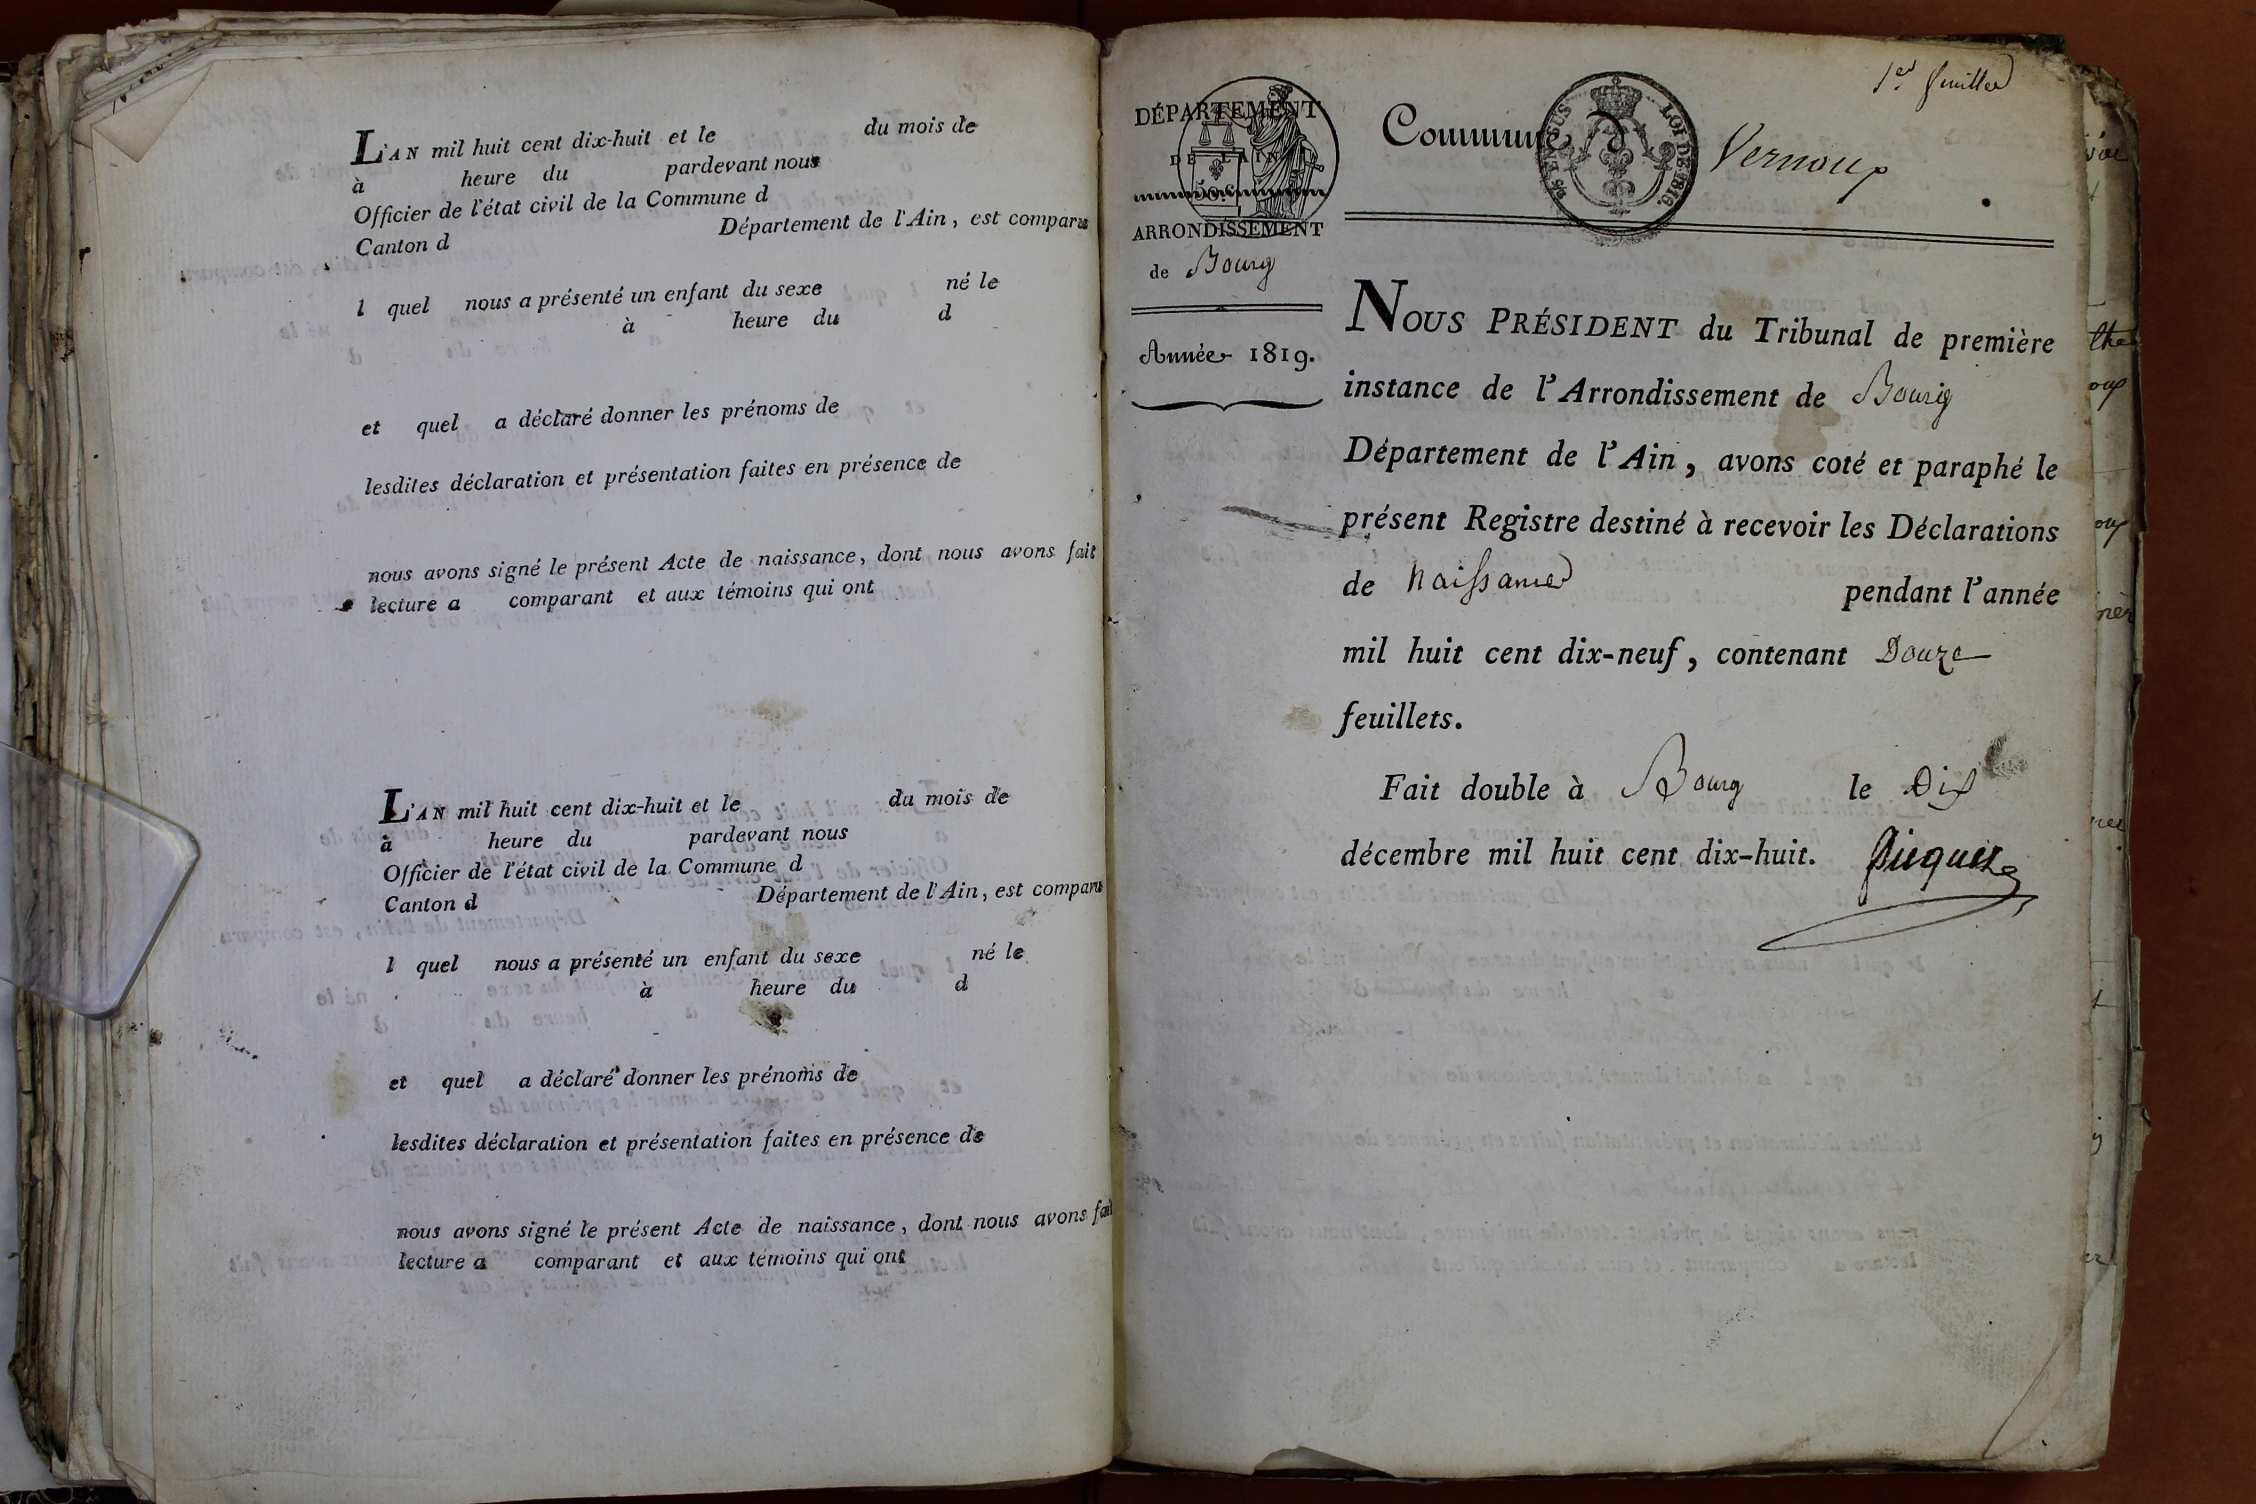 L'AN mil huit cent dix-huit et le du mois de
à heure du pardevant nous
Officier de l'état civil de la Commune d
Canton d Département de l'Ain, est comparu
l quel nous a présenté un enfant du sexe né le
à heure du d
et quel a déclaré donner les prénoms de
lesdites déclaration et présentation faites en présence de
nous avons signé le présent Acte de naissance, dont nous avons fait
lecture a comparant et aux témoins qui ont
L'AN mil huit cent dix-huit et le du mois de
à heure du pardevant nous
Officier de l'état civil de la Commune d
Canton d Département de l'Ain, est comparu
l quel nous a présenté un enfant du sexe né le
à heure du d
et quel a déclaré donner les prénoms de
lesdites déclaration et présentation faites en présence de
nous avons signé le présent Acte de naissance, dont nous avons fait
lecture a comparant et aux témoins qui ont
1er feuillet
DÉPARTEMENT
DE L'AIN
50 c
ARRONDISSEMENT
de Bourg
Année 1819.
Commune d Vernoux
EN SUS LOI DE 1816.
NOUS PRÉSIDENT du Tribunal de première
instance de l'Arrondissement de Bourg
Département de l'Ain, avons coté et paraphé le
présent Registre destiné à recevoir les Déclarations
de Naissance pendant l'année
mil huit cent dix-neuf, contenant Douze
feuillets.
Fait double à Bourg le Dix
décembre mil huit cent dix-huit. Picquet